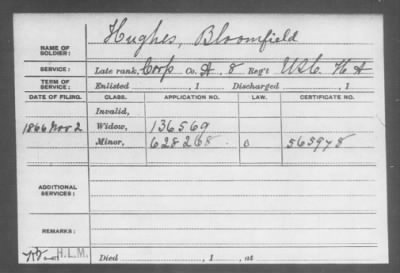 Hughes, Bloomfield
NAME OF SOLDIER:
SERVICE: Late rank, Corp Co. A. 8 Reg't U.S.C. H A
TERM OF SERVICE: Enlisted , 1 Discharged , 1
DATE OF FILING. CLASS. APPLICATION NO. LAW. CERTIFICATE NO.
Invalid,
1866 Nov 2 Widow, 136569
Minor, 628268 565978
ADDITIONAL SERVICES:
REMARKS:
H.L.M. Died , 1 , at